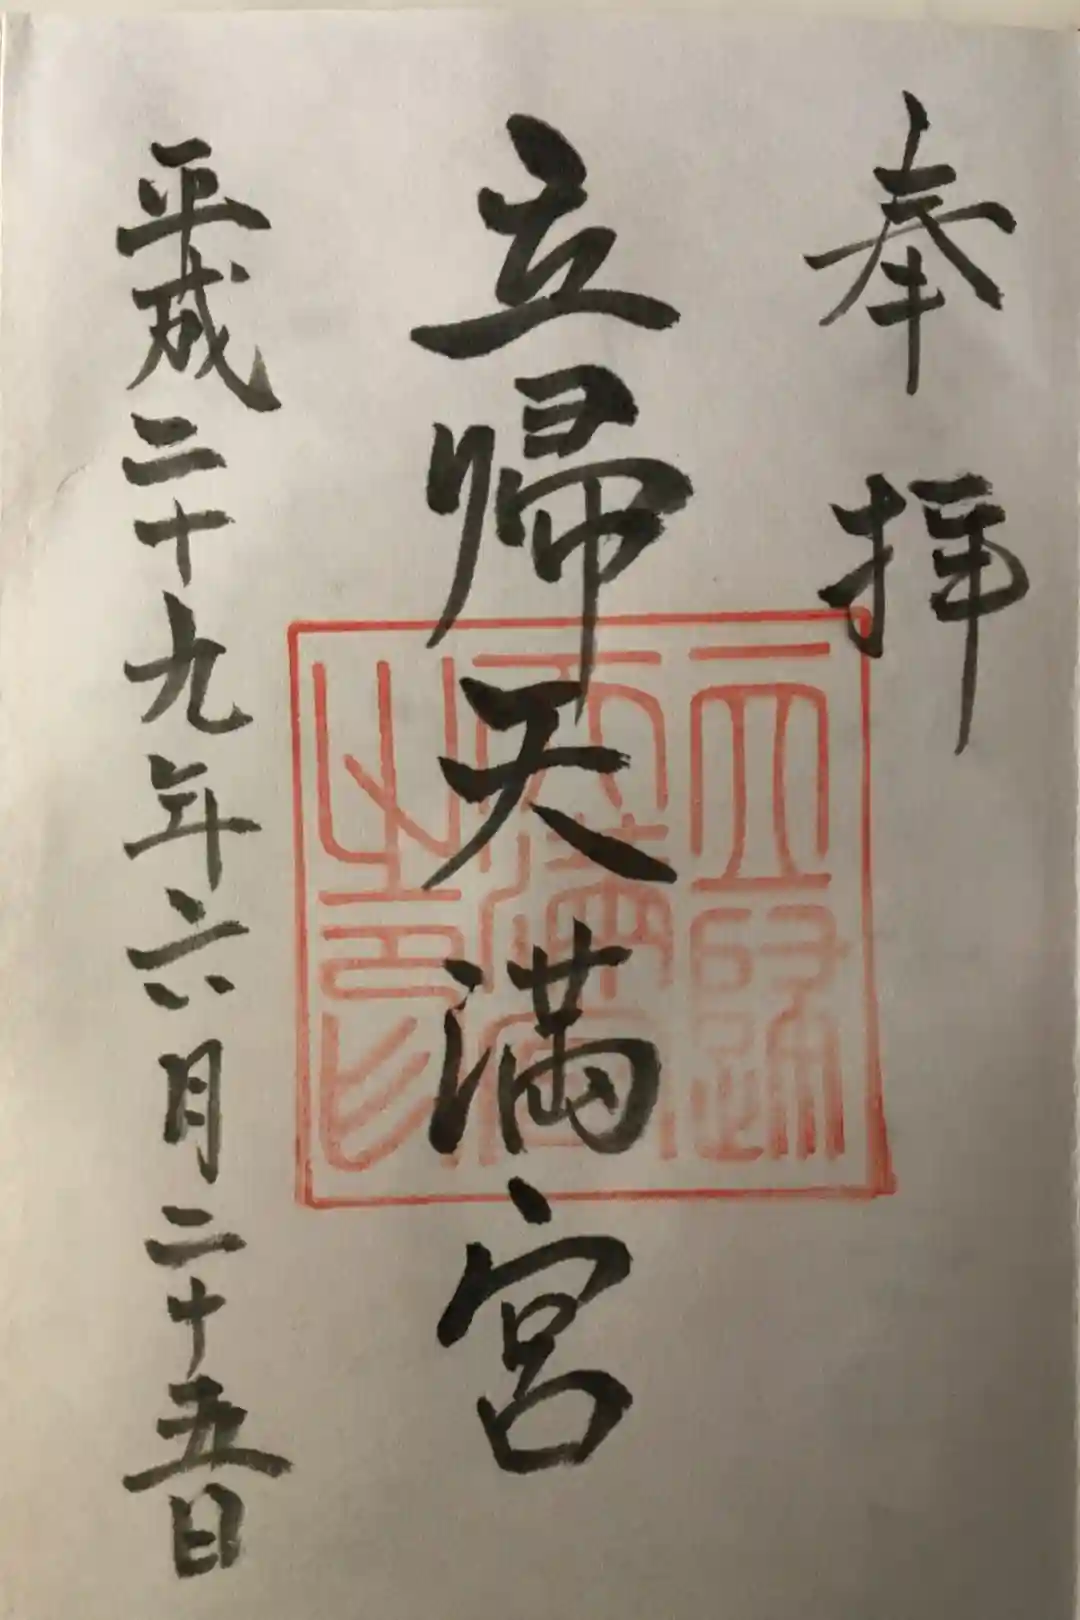 奉拝
立帰天満宮
平成二十九年六月二十五日
立歸
天満宮
之印